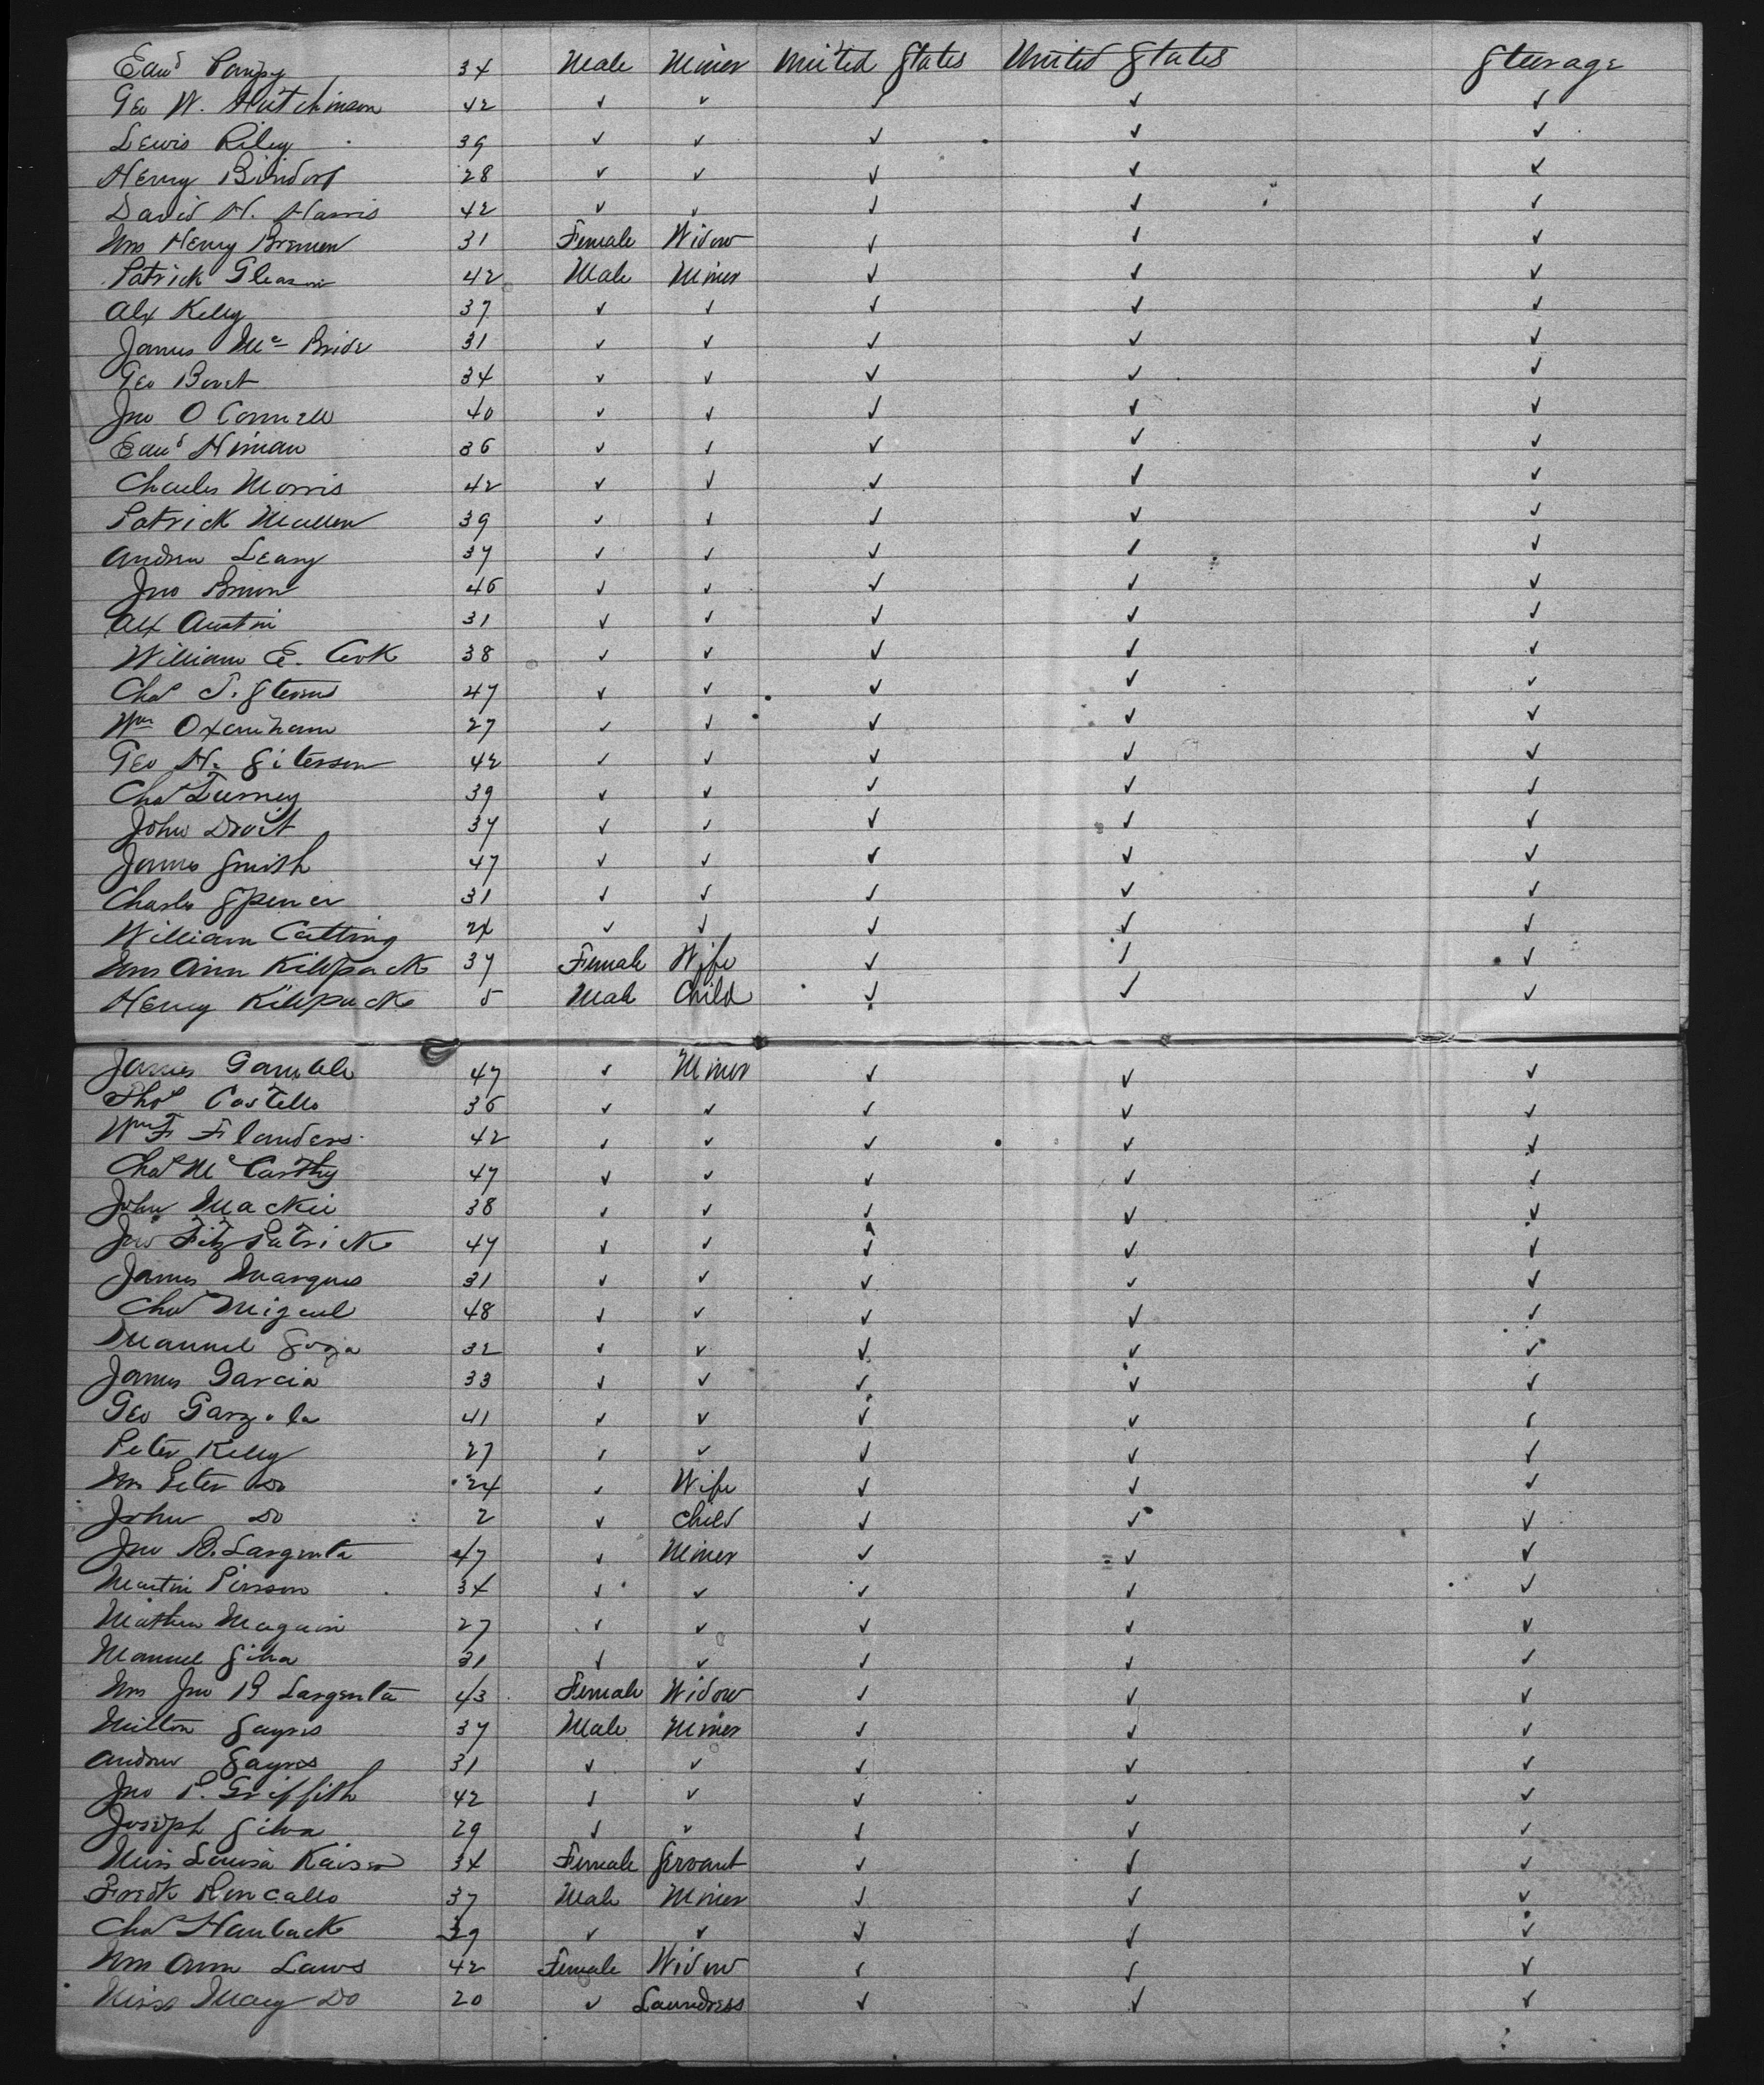 Edwd 34 Male Miner United States United States Steerage
Geo W. Hutchinson 42 ✓ ✓ ✓ ✓ ✓
Lewis Riley 39 ✓ ✓ ✓ ✓ ✓
Henry 28 ✓ ✓ ✓ ✓ ✓
David H. Harris 42 ✓ ✓ ✓ ✓ ✓
Mrs Henry Bremen 31 Female Widow ✓ ✓ ✓
Patrick Gleason 42 Male Miner ✓ ✓ ✓
Alx Kelly 37 ✓ ✓ ✓ ✓ ✓
James Mc Bride 31 ✓ ✓ ✓ ✓ ✓
Geo 34 ✓ ✓ ✓ ✓ ✓
Jno O Connell 40 ✓ ✓ ✓ ✓ ✓
Edwd Hinian 36 ✓ ✓ ✓ ✓ ✓
Charles Morris 42 ✓ ✓ ✓ ✓ ✓
Patrick Mullen 39 ✓ ✓ ✓ ✓ ✓
Andrew Leary 37 ✓ ✓ ✓ ✓ ✓
Jno Brown 46 ✓ ✓ ✓ ✓ ✓
Alx Austin 31 ✓ ✓ ✓ ✓ ✓
William E. Cook 38 ✓ ✓ ✓ ✓ ✓
Chas S. Stevens 47 ✓ ✓ ✓ ✓ ✓
Wm Oxenham 27 ✓ ✓ ✓ ✓ ✓
Geo H. Siterson 42 ✓ ✓ ✓ ✓ ✓
Chas Turney 39 ✓ ✓ ✓ ✓ ✓
John Droit 37 ✓ ✓ ✓ ✓ ✓
James Smith 47 ✓ ✓ ✓ ✓ ✓
Charles Spencer 31 ✓ ✓ ✓ ✓ ✓
William Catting 24 ✓ ✓ ✓ ✓ ✓
Mrs Ann Killpack 37 Female Wife ✓ ✓ ✓
Henry Killpack 5 Male Child ✓ ✓ ✓
James Gamble 47 ✓ Miner ✓ ✓ ✓
Thos Costello 36 ✓ ✓ ✓ ✓ ✓
Wm F Flanders 42 ✓ ✓ ✓ ✓ ✓
Chas Mc Carthy 47 ✓ ✓ ✓ ✓ ✓
John Mackie 38 ✓ ✓ ✓ ✓ ✓
Jno Fitz Patrick 47 ✓ ✓ ✓ ✓ ✓
James Marques 31 ✓ ✓ ✓ ✓ ✓
Chas Miguel 48 ✓ ✓ ✓ ✓ ✓
Manuel 32 ✓ ✓ ✓ ✓ ✓
James Garcia 33 ✓ ✓ ✓ ✓ ✓
Geo 41 ✓ ✓ ✓ ✓ ✓
Peter Kelly 27 ✓ ✓ ✓ ✓ ✓
Mrs Peter Do 24 ✓ Wife ✓ ✓ ✓
John Do 2 ✓ Child ✓ ✓ ✓
Jno B. Largenta 47 ✓ Miner ✓ ✓ ✓
Martin Pirsson 34 ✓ ✓ ✓ ✓ ✓
Mathew Maguin 27 ✓ ✓ ✓ ✓ ✓
Manuel Silva 31 ✓ ✓ ✓ ✓ ✓
Mrs Jno B Largenta 43 Female Widow ✓ ✓ ✓
Milton Sayres 37 Male Miner ✓ ✓ ✓
Andrew Sayres 31 ✓ ✓ ✓ ✓ ✓
Jno P. Griffith 42 ✓ ✓ ✓ ✓ ✓
Joseph Silva 29 ✓ ✓ ✓ ✓ ✓
Miss Louisa Kaiser 34 Female Servant ✓ ✓ ✓
Fredk Roncallo 37 Male Miner ✓ ✓ ✓
Chas Hauback 39 ✓ ✓ ✓ ✓ ✓
Mrs Ann Laws 42 Female Widow ✓ ✓ ✓
Miss Mary Do 20 ✓ Laundress ✓ ✓ ✓